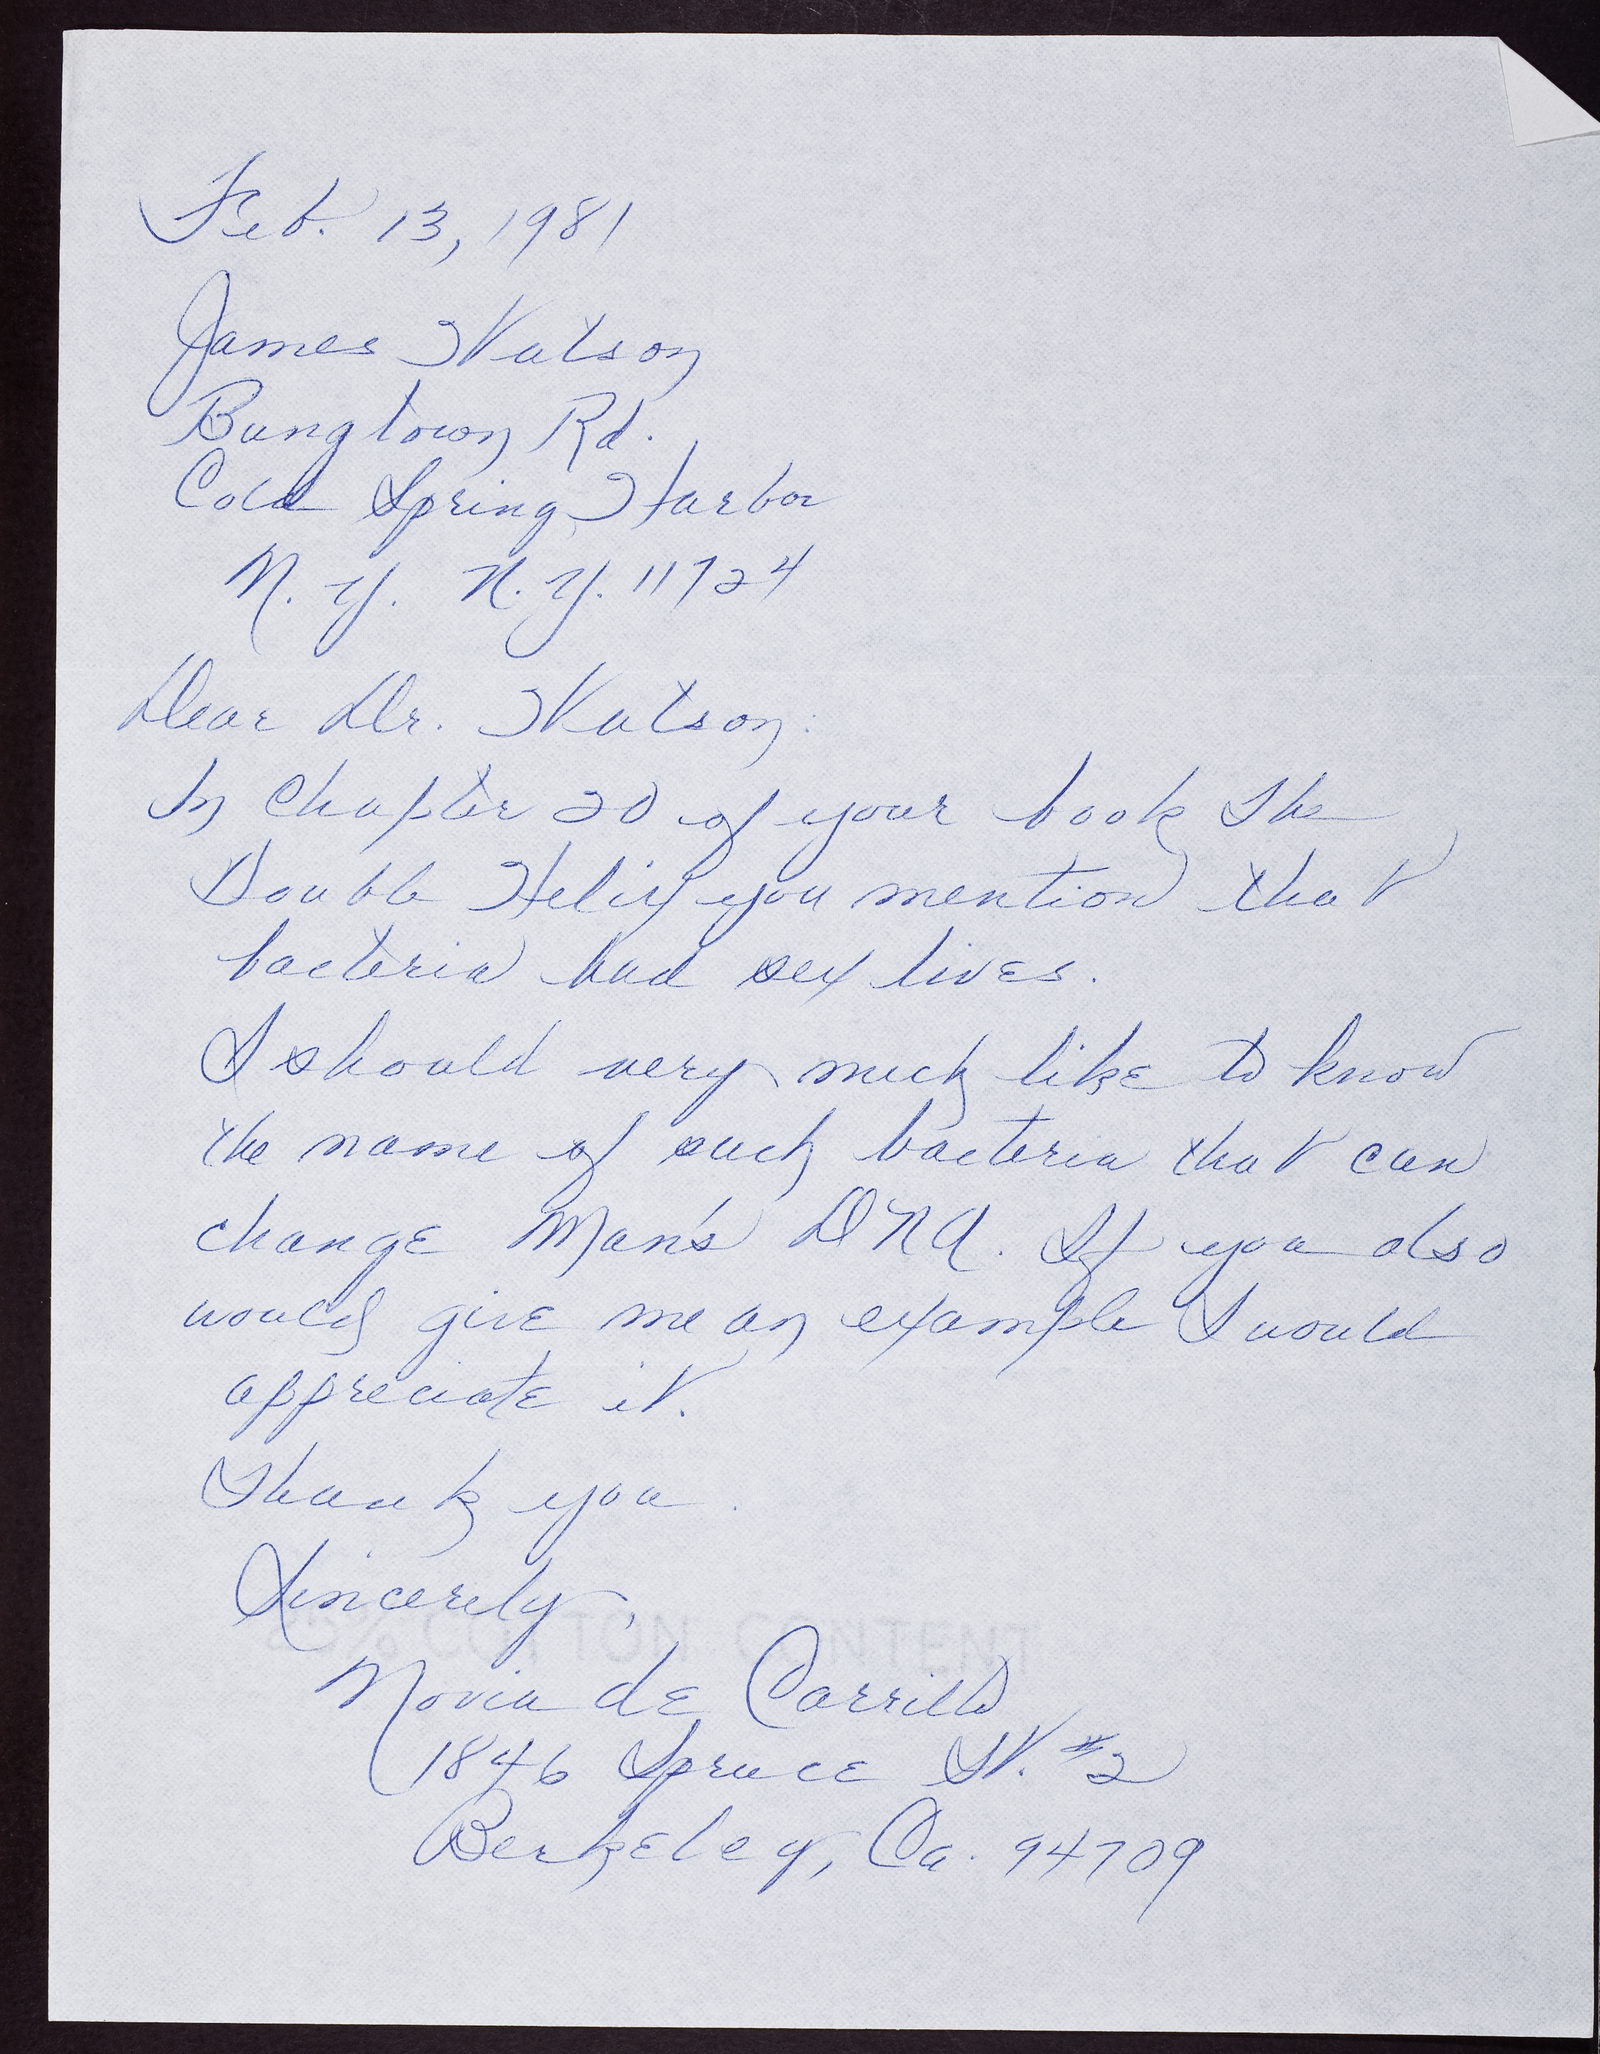 Feb. 13, 1981
James Watson
Bungtown Rd.
Cold Spring Harbor
N.Y. N.Y. 11724
Dear Dr. Watson:
In Chapter 20 of your book The
Double Helix you mention that
bacteria had sex lives.
I should very much like to know
the name of such bacteria that can
change Man's DNA. If you also
would give me an example I would
appreciate it.
Thank you.
Sincerely,
25% COTTON CONTENT
Novia de Carrillo
1846 Spruce St. #2
Berkeley, Ca. 94709